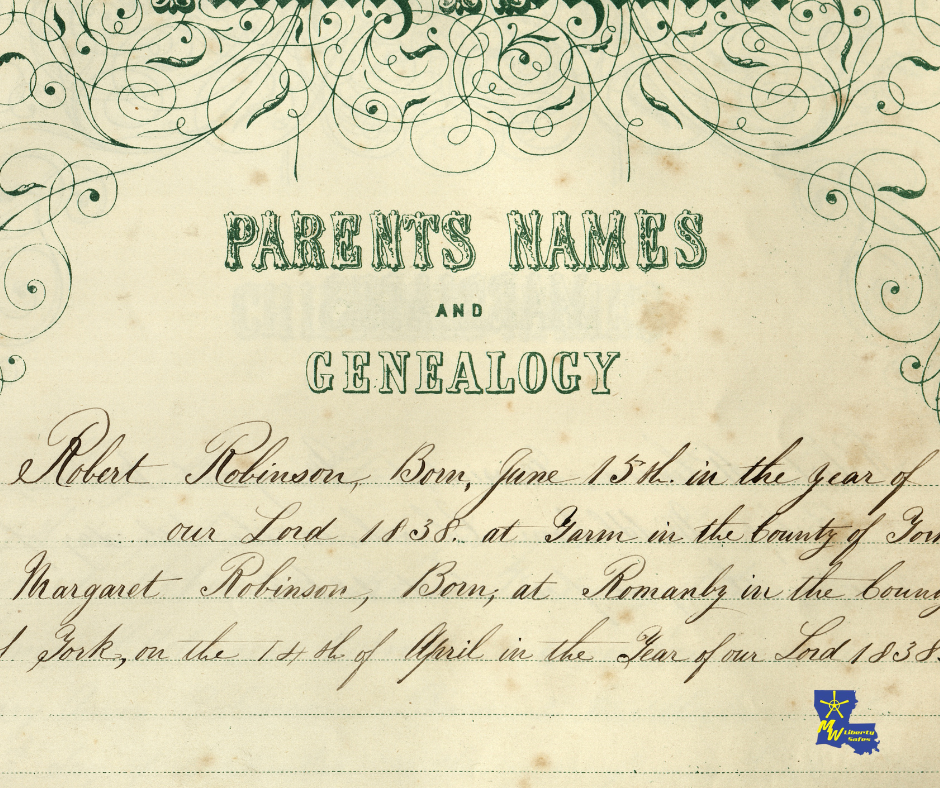 PARENTS NAMES
AND
GENEALOGY
Robert Robinson, Born, June 15th. in the year of
our Lord 1838. at Yarm in the County of
Margaret Robinson, Born, at Romanby in the
York, on the 14th of April in the Year of our Lord 1838.
MW Liberty
Safes